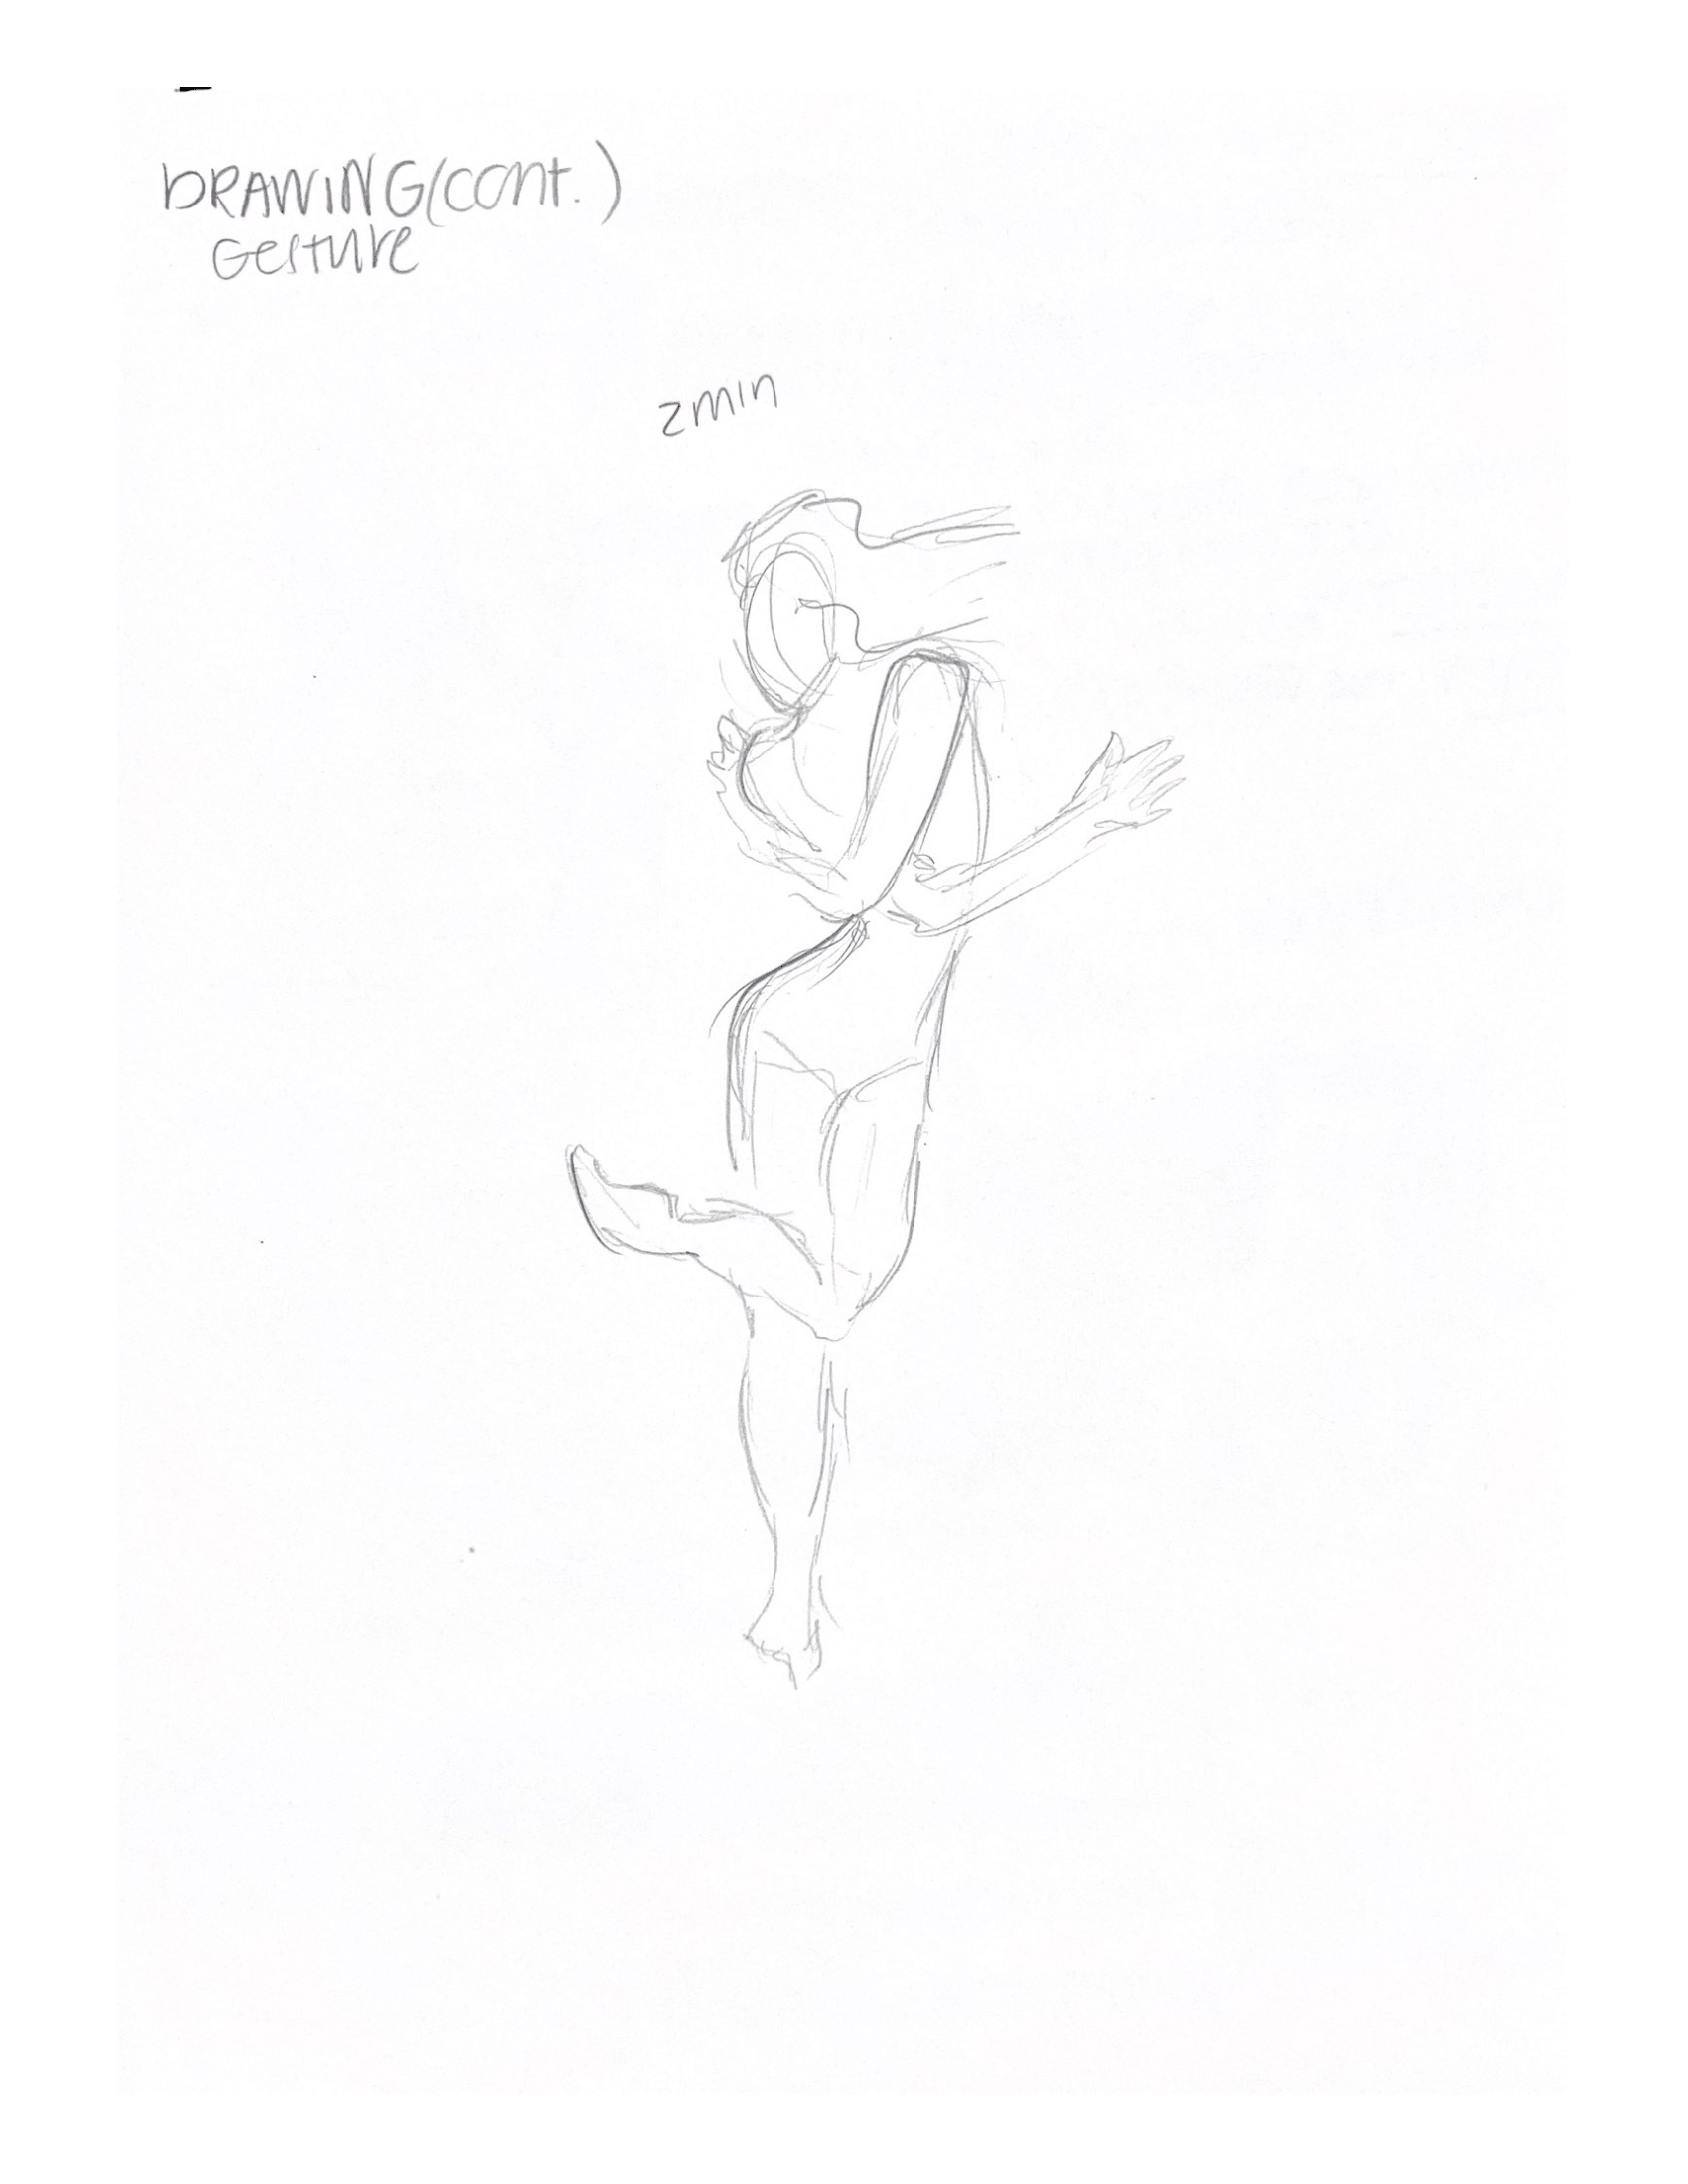 DRAWING (cont.)
Gesture
2min